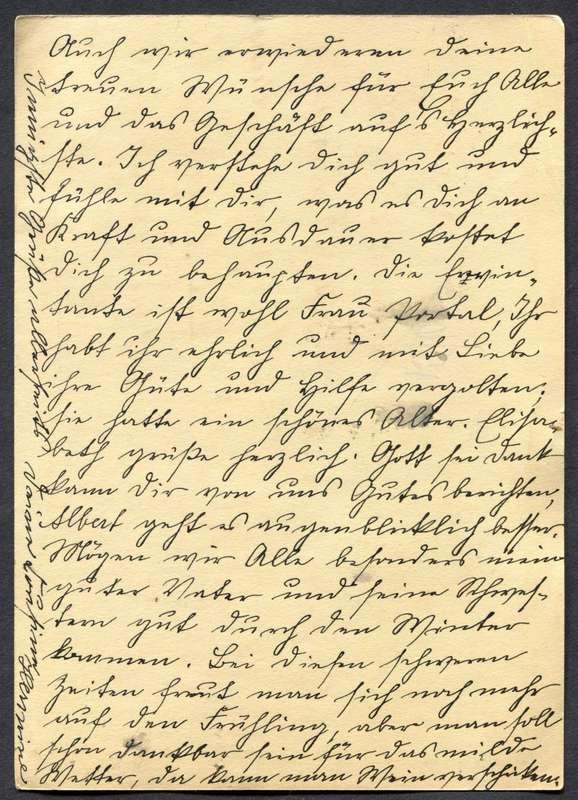 Auch wir erwiederen deine
treuen Wünsche für Euch Alle
und das Geschäft auf's Herzlich-
ste. Ich verstehe dich gut und
fühle mit dir, was es dich an
Kraft und Ausdauer kostet
dich zu behaupten. Die Erwin-
tante ist wohl Frau Portal, Ihr
habt ihr ehrlich und mit Liebe
ihre Güte und Hilfe vergolten;
sie hatte ein schönes Alter. Elisa-
beth grüße herzlich. Gott sei Dank
kann dir von uns Gutes berichten,
Albert geht es augenblicklich besser.
Mögen wir Alle besonders mein
guter Vater und seine Schwes-
tern gut durch den Winter
kommen. Bei diesen schweren
Zeiten freut man sich noch mehr
auf den Frühling, aber man soll
schon dankbar sein für das milde
Wetter, da kann man Wein verschicken.
Innigste Grüße allerseits
Hermine